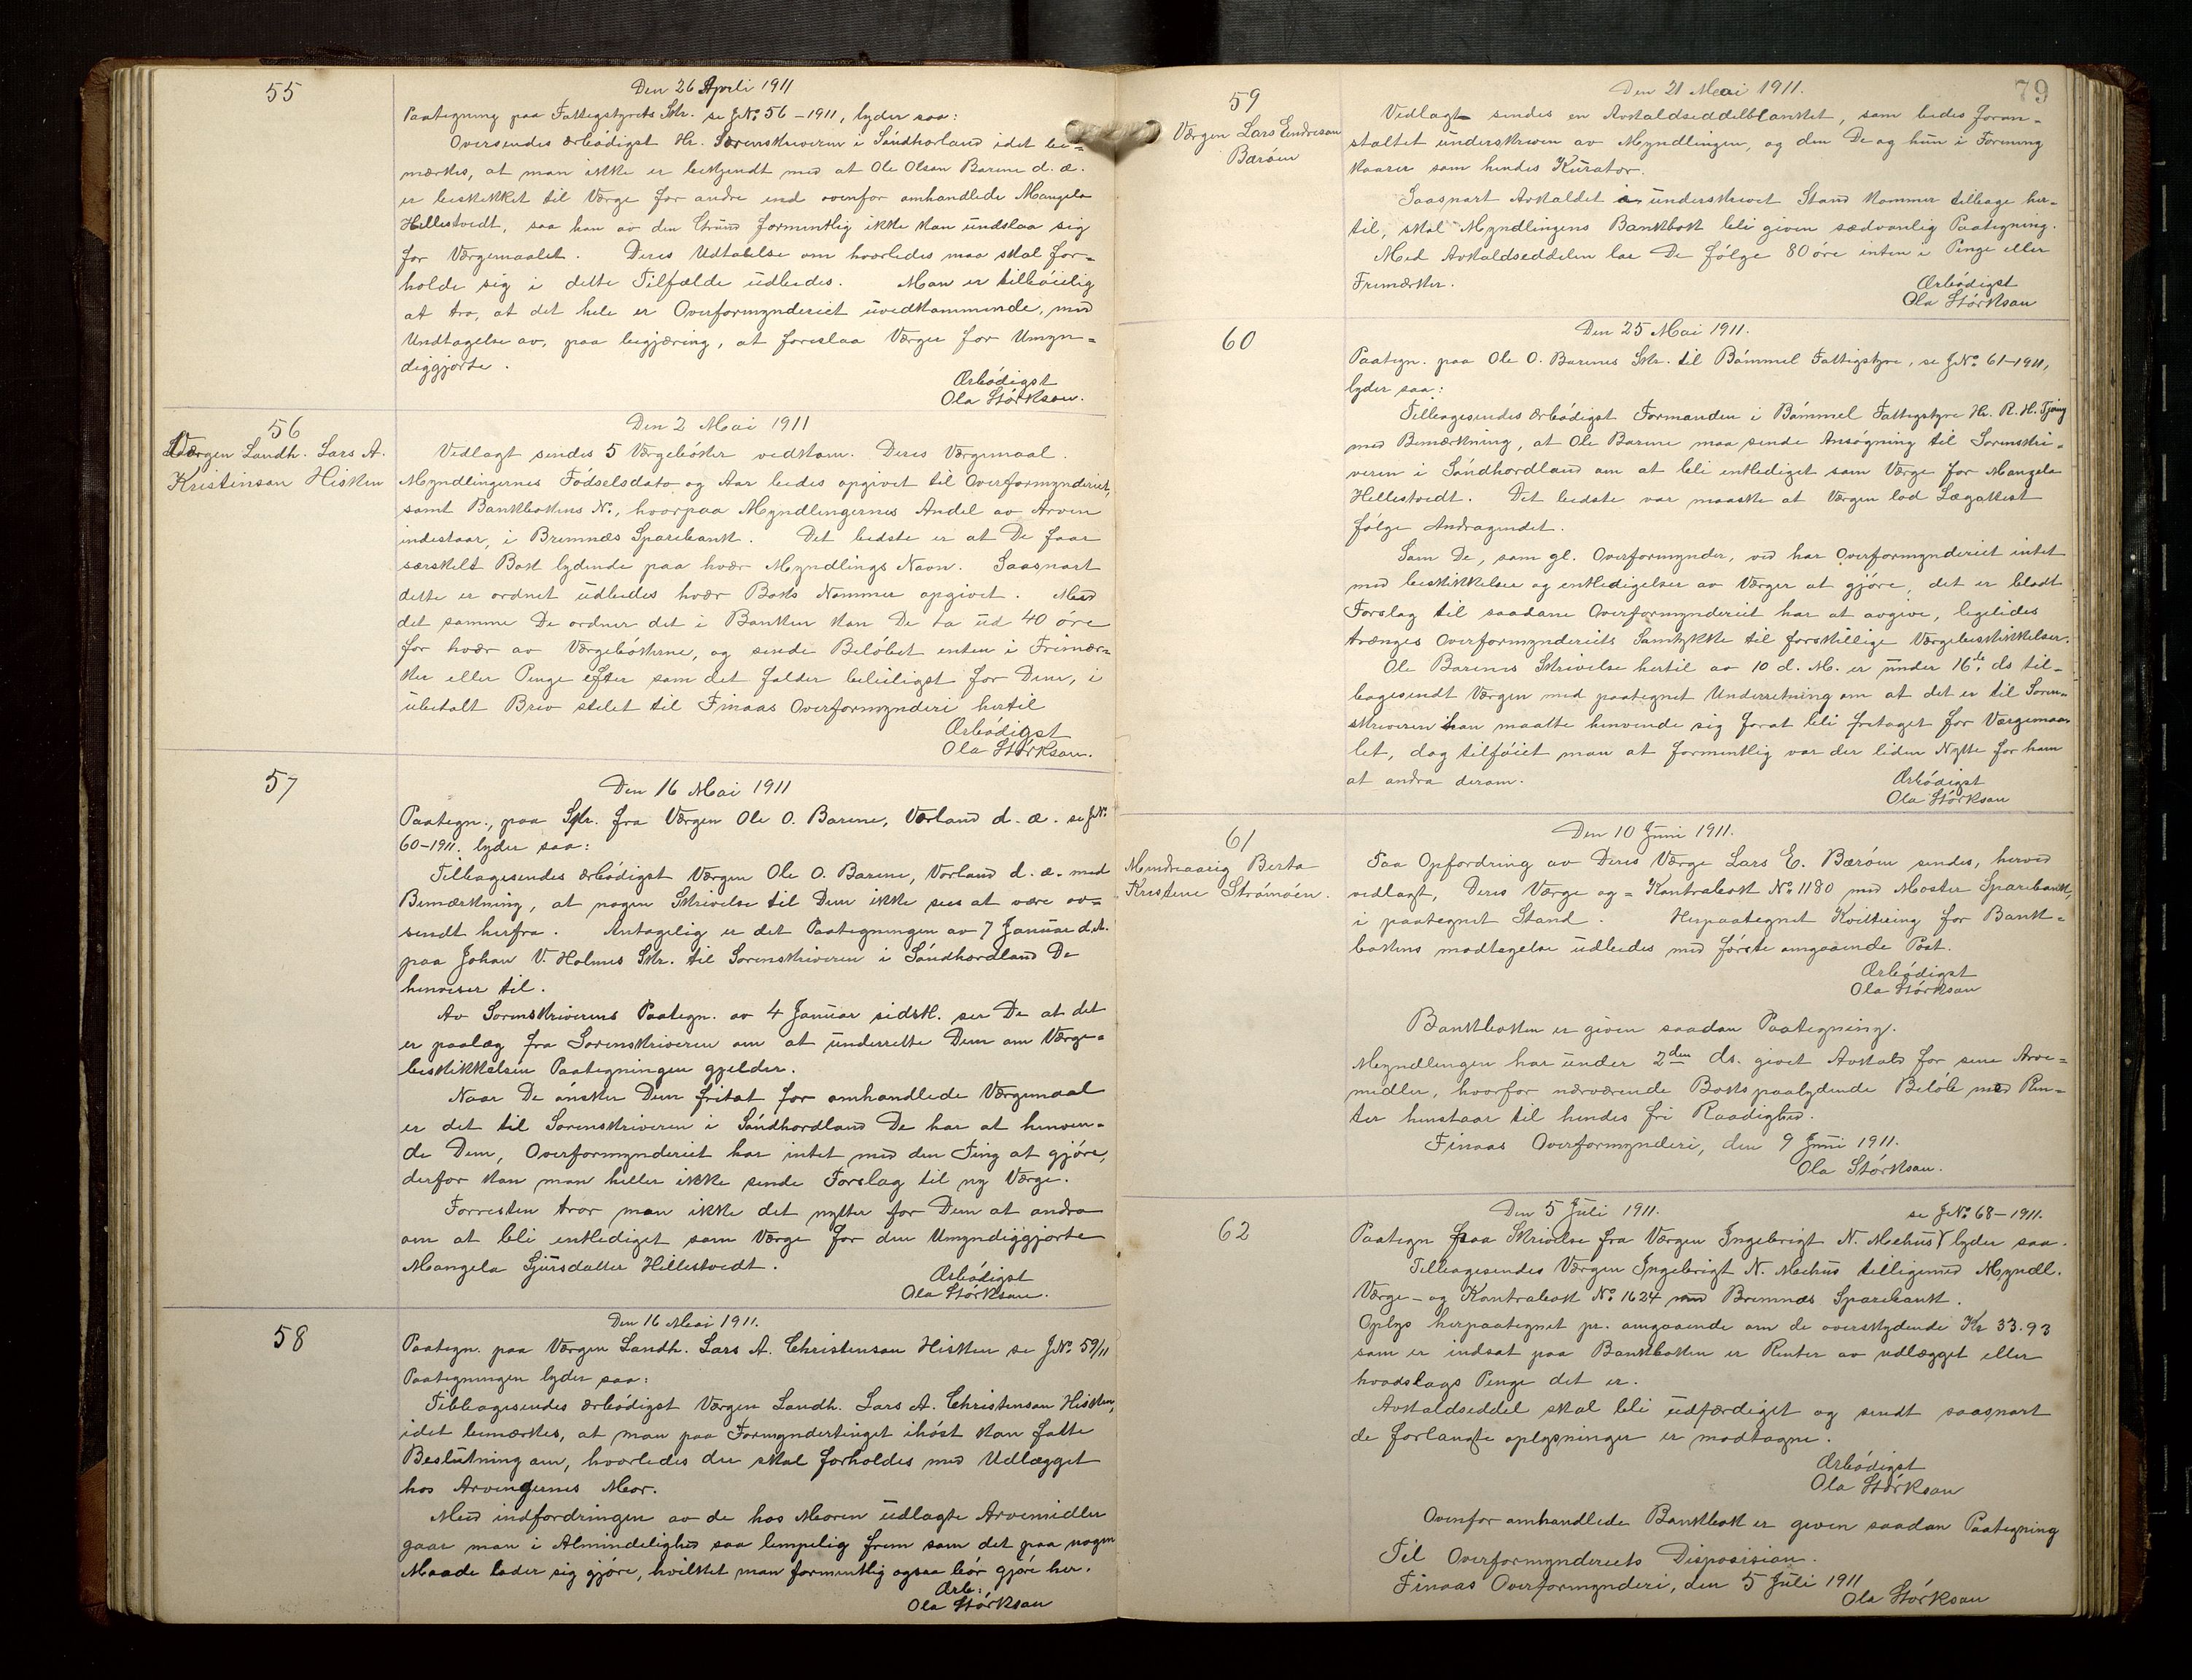 55
Den 26 April 1911
Paategning paa Fattigstyrets Skr. se JNo 56 – 1911, lyder saa:
Oversendes ærbödigst Hr. Sorenskriveren i Söndhorland idet be=
mærkes, at man ikke er bekjendt med at Ole Olsen Barene d. æ.
er beskikket til Værge for andre end ovenfor omhandlede Mangela
Hellestvedt, saa han av den Grund formentlig ikke kan undslaa sig
for Værgemaalet. Deres Udtalelse om hvorledes maa skal for=
holde sig i dette Tilfælde udbedes. Man er tilböielig
at tro, at det hele er Overformynderiet uvedkommende, med
Undtagelse av, paa begjæring, at foreslaa Værger for Umyn=
diggjorte.
Ærbödigst
Ola Störkson.
56
Værgen Landh. Lars A.
Kristenson Hisken
Den 2 Mai 1911
Vedlagt sendes 5 Værgeböker vedkom. Deres Værgemaal.
Myndlingernes Födselsdato og Aar bedes opgivet til Overformynderiet,
samt Bankbokens No., hvorpaa Myndlingernes Andel av Arven
indestaar, i Bremnæs Sparebank. Det bedste er at De faar
særskilt Bok lydende paa hvær Myndlings Navn. Saasnart
dette er ordnet udbedes hvær Boks Nommer opgivet. Med
det samme De ordner det i Banken kan De ta ud 40 öre
for hvær av Værgebökerne, og sende Belöbet enten i Frimær=
ker eller Penge efter som det falder beleiligst for Dem, i
ubetalt Brev stilet til Finaas Overformynderi hertil
Ærbödigst
Ola Störkson.
57
Den 16 Mai 1911
Paategn., paa Skr. fra Værgen Ole O. Barene, Vorland d. æ. se JNo
60–1911. lyder saa:
Tilbagesendes ærbödigst Værgen Ole O. Barene, Vorland d. æ. med
Bemærkning, at nogen Skrivelse til Dem ikke sees at være av=
sendt herfra. Antagelig er det Paategningen av 7 Januar d.A.
paa Johan V. Holmes Skr. til Sorenskriveren i Söndhordland De
henviser til.
Av Sorenskriverens Paategn. av 4 Januar sidstl. ser De at det
er paalæg fra Sorenskriveren om at underrette Dem om Værge=
beskikkelsen Paategningen gjelder.
Naar De önsker Dem fritat for omhandlede Værgemaal
er det til Sorenskriveren i Söndhordland De har at henven=
de Dem, Overformynderiet har intet med den Ting at gjöre,
derfor kan man heller ikke sende Forslag til ny Værge.
Forresten tror man ikke det nytter for Dem at andra
om at bli entlediget som Værge for den Umyndiggjorte
Mangela Sjursdatter Hillestvedt.
Ærbödigst
Ola Störkson.
58
Den 16 Mai 1911.
Paategn. paa Værgen Landh. Lars A. Christenson Hisken se JNo 59/11
Paategningen lyder saa:
Tilbagesendes ærbödigst Værgen Landh. Lars A. Christenson Hisken,
idet bemærkes, at man paa Formyndertinget ihöst kan fatte
Beslutning om, hvorledes der skal forholdes med Udlægget
hos Arvingernes Mor.
Med indfordringen av de hos Moren udlagte Arvemidler
gaar man i Almindelighed saa lempelig frem som det paa nogen
Maade lader sig gjöre, hvilket man formentlig ogsaa bör gjöre her.
Ærb:
Ola Störkson
79
59
Værgen Lars Endreson
Baröen
Den 21 Mai 1911.
Vedlagt sendes en Avkaldseddelblanket, som bedes foran=
staltet underskreven av Myndlingen, og den De og hun i Forening
kaarer som hendes Kurator.
Saasnart Avkaldet i underskrevet Stand kommer tilbage her=
til, skal Myndlingens Bankbok bli given sædvanlig Paategning.
Med Avkaldseddelen lar De fölge 80 öre enten i Penge eller
Frimærker.
Ærbödigst
Ola Störkson
60
Den 25 Mai 1911.
Paategn. paa Ole O. Barenes Skr. til Bömmel Fattigstyre, se JNo 61–1911,
lyder saa:
Tilbagesendes ærbödigst Formanden i Bömmel Fattigstyre Hr. R. H. Tjong
med Bemærkning, at Ole Barene maa sende Ansögning til Sorenskri=
veren i Söndhordland om at bli entlediget som Værge for Mangela
Hillestvedt. Det bedste var maaske at Værgen lod Lægattest
fölge Andragendet.
Som De, som gl. Overformynder, ved har Overformynderiet intet
med beskikkelser og entledigelser av Værger at gjöre, det er blodt
Forslag til saadane Overformynderiet har at avgive, ligeledes
trænges Overformynderiets Samtykke til forskillige Værgebeskikkelser.
Ole Barenes Skrivelse hertil av 10 d. M. er under 16de ds til=
bagesendt Værgen med paategnet Underretning om at det er til Soren=
skriveren han maatte henvende sig forat bli fritaget for Værgemaa=
let, dog tilföiet man at formentlig var der liden Nytte for ham
at andra derom.
Ærbödigst
Ola Störkson
61
Mindreaarig Berta
Kristine Strömöen.
Den 10 Juni 1911.
Paa Opfordring av Deres Værge Lars E. Baröen sendes, herved
vedlagt, Deres Værge og = Kontrabok No 1180 med Moster Sparebank,
i paategnet Stand. Herpaategnet Kvittering for Bank=
bokens modtagelse udbedes med förste omgaaende Post.
Ærbödigst
Ola Störkson
Bankboken er given saadan Paategning.
Myndlingen har under 2den ds. givet Avkald for sine Arve=
midler, hvorfor nærværende Boks paalydende Belöb med Ren=
ter henstaar til hendes fri Raadighed.
Finaas Overformynderi, den 9 Juni 1911.
Ola Störkson.
62
Den 5 Juli 1911.
se JNo 68 – 1911.
Paategn paa Skrivelse fra Værgen Ingebrigt N. Mehus lyder saa.
Tilbagesendes Værgen Ingebrigt N. Mehus tilligemed Myndl.
Værge – og Kontrabok No 1624 med Bremnæs Sparebank.
Oplys herpaategnet pr. omgaaende om de overskydende Kr 33.93
som er indsat paa Bankboken er Renter av udlægget eller
hvadslags Penge det er.
Avkaldseddel skal bli udfærdiget og sendt saasnart
de forlangte oplysninger er modtagne.
Ærbödigst
Ola Störkson
Ovenfor omhandlede Bankbok er given saadan Paategning
Til Overformynderiets Disposision.
Finaas Overformynderi, den 5 Juli 1911
Ola Störkson